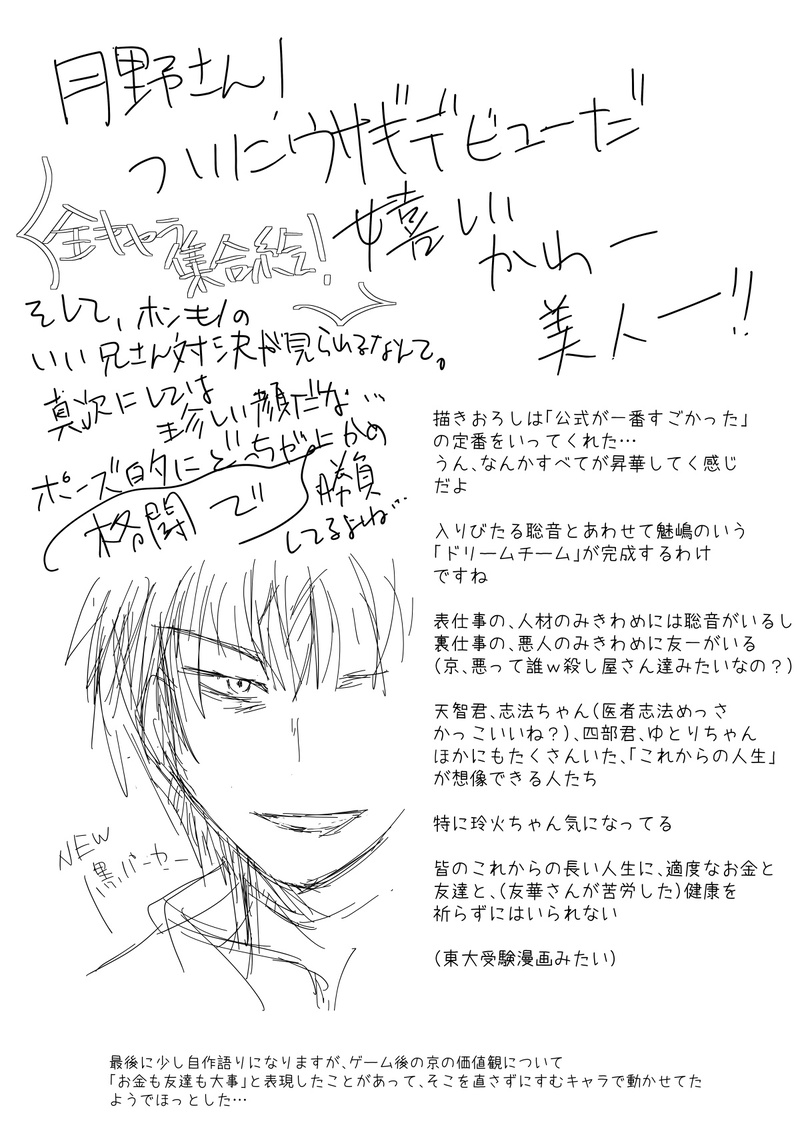 月野さん!
ついにウサギデビューだ
嬉しい
かわー
美人ー!!
全キャラ
集合絵!
そして、ホンモノの
いい兄さん対決が見られるなんて。
真次にしては
珍しい顔だな…
ポーズ的にどっちがよかめ
格闘で
勝負
してるよね…
描きおろしは「公式が一番すごかった」
の定番をいってくれた…
うん、なんかすべてが昇華してく感じ
だよ
入りびたる聡音とあわせて魅嶋のいう
「ドリームチーム」が完成するわけ
ですね
表仕事の、人材のみきわめには聡音がいるし
裏仕事の、悪人のみきわめに友一がいる
(京、悪って誰w殺し屋さん達みたいなの?)
天智君、志法ちゃん(医者志法めっさ
かっこいいね?)、四部君、ゆとりちゃん
ほかにもたくさんいた、「これからの人生」
が想像できる人たち
特に玲火ちゃん気になってる
皆のこれからの長い人生に、適度なお金と
友達と、(友華さんが苦労した)健康を
祈らずにはいられない
(東大受験漫画みたい)
NEW
黒パーカー
最後に少し自作語りになりますが、ゲーム後の京の価値観について
「お金も友達も大事」と表現したことがあって、そこを直さずにすむキャラで動かせてた
ようでほっとした…